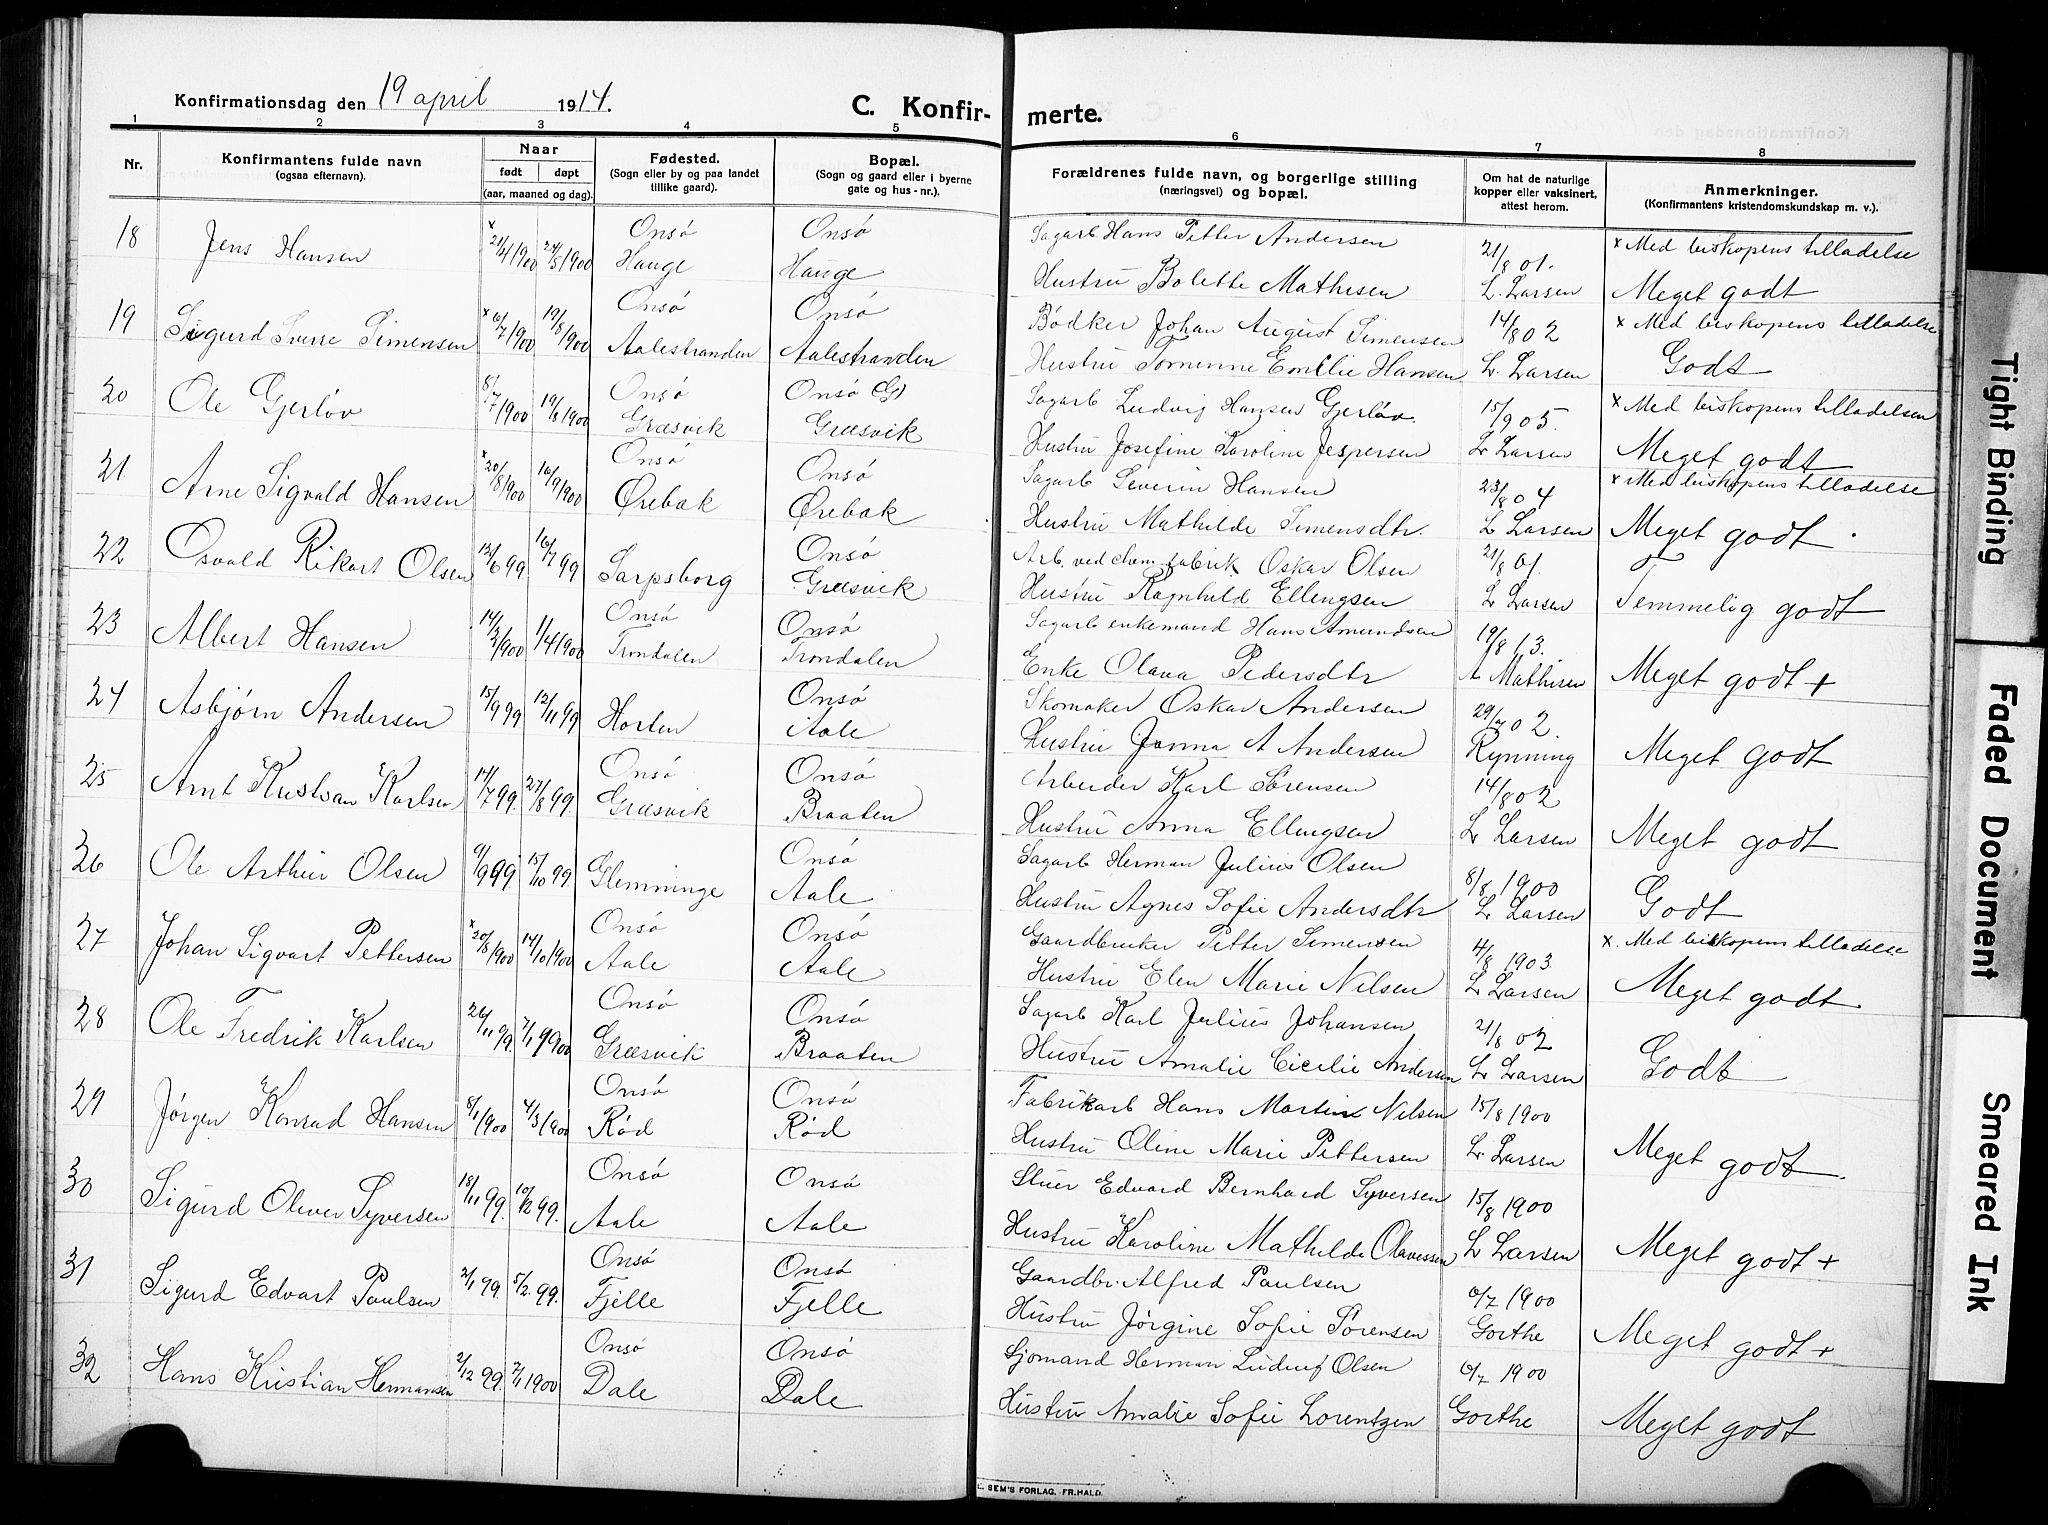 Konfirmationsdag den 19 april 1914. C. Konfir- merte.
1 2 3 4 5 6 7 8
Nr. Konfirmantens fulde navn (ogsaa efternavn). Naar født døpt (aar, maaned og dag). Fødested. (Sogn eller by og paa landet tillike gaard). Bopæl. (Sogn og gaard eller i byerne gate og hus-nr.). Forældrenes fulde navn, og borgerlige stilling (næringsvei) og bopæl. Om hat de naturlige kopper eller vaksinert, attest herom. Anmerkninger. (Konfirmantens kristendomskundskap m. v.).
18 Jens Hansen x 21/4 1900 24/5 1900 Onsø Hauge Onsø Hauge Sagarb Hans Petter Andersen 21/8 01. x Med biskopens tilladelse
Hustru Bolette Mathisen L. Larsen Meget godt
19 Sigurd Sverre Simensen x 6/7 1900 19/8 1900 Onsø Aalestranden Onsø Aalestranden Bødker Johan August Simensen 14/8 02 x Med biskopens tilladelse
Hustru Tomenne Emilie Hansen L. Larsen Godt
20 Ole Gjerløv 8/7 1900 19/8 1900 Onsø Græsvik Onsø Græsvik Sagarb Ludvig Hansen Gjerløv 15/9 05. x Med biskopens tilladelsen
Hustru Josefine Karoline Jespersen L Larsen Meget godt
21 Arne Sigvald Hansen x 20/8 1900 16/9 1900 Onsø Ørebak Onsø Ørebak Sagarb Severin Hansen 23/8 04 x Med biskopens tilladelse
Hustru Mathilde Simensdtr. L Larsen Meget godt.
22 Osvald Rikart Olsen 12/6 99 16/7 99 Sarpsborg Onsø Græsvik Arb. ved chem. fabrik Oskar Olsen 21/8 01.
Hustru Ragnhild Ellengsen L Larsen Temmelig godt
23 Albert Hansen 14/2 1900 1/4 1900 Onsø Trondalen Onsø Trondalen Sagarb enkemand Hans Amundsen 19/8 13.
Enke Olava Pedersdtr A Mathisen Meget godt +
24 Asbjørn Andersen 15/9 99 12/11 99 Horten Onsø Aale Skomaker Oskar Andersen 29/7 02.
Hustru A Andersen Rynning Meget godt
25 Arnt Kristian Karlsen 14/7 99. 27/8 99. Onsø Græsvik Onsø Braaten Arbeider Karl Sørensen 14/8 02
Hustru Anna Ellingsen L Larsen Meget godt
26 Ole Arthur Olsen 9/9 99. 15/10 99. Glemminge Onsø Aale Sagarb Herman Julius Olsen 8/8 1900
Hustru Agnes Sofie Andersdtr L Larsen Godt
27 Johan Sigvart Pettersen x 20/8 1900 14/10 1900 Onsø Aale Onsø Aale Gaardbruker Petter Simensen 4/8 1903. x. Med biskopens tilladelse
Hustru Elen Marie Nilsen L Larsen Meget godt
28 Ole Fredrik Karlsen 26/11 99. 7/1 1900 Onsø Græsvik Onsø Braaten Sagarb Karl Julius Johansen 21/8 02
Hustru Amalie Cicilie Andersen L Larsen Godt
29 Jørgen Konrad Hansen 8/1 1900 4/3 1900 Onsø Rød Onsø Rød Fabrikarb Hans Martin Nilsen 15/8 1900
Hustru Oline Marie Pettersen L. Larsen Meget godt.
30 Sigurd Oliver Syversen 18/11 99. 10/12 99. Onsø Aale Onsø Aale Stuer Edvard Bernhard Syversen 15/8 1900
Hustru Karoline Mathilde Olavessen L Larsen Meget godt +
31 Sigurd Edvart Paulsen 2/1 99. 5/2. 99. Onsø Fjelle Onsø Fjelle Gaardbr. Alfred Paulsen 6/7 1900
Hustru Jørgine Sofie Sørensen Gorthe Meget godt +
32 Hans Kristian Hermansen 2/12 99. 7/1 1900 Onsø Dale Onsø Dale Sjømand Herman Ludvig Olsen 6/7 1900
Hustru Amalie Sofie Lorentzen Gorthe Meget godt
SEM'S FORLAG, FR.HALD.
Tight Binding
Faded Document
Smeared Ink